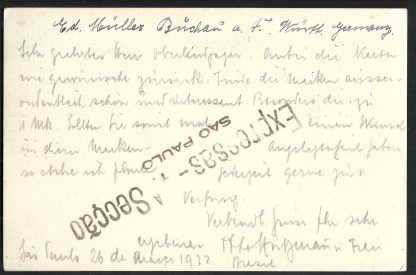 Ed. Müller Büchau a. F. Württ. Germany.
Sehr geehrter Herr Anbei die Karten
wie gewünscht zurück. Finde die Marken ausser-
ordentlich schön und interessant Besonders die zu
1 Mk. Sollten Sie sonst mal einen Wunsch
in dieser Marken- Angelegenheit haben
so stehe ich Ihnen jederzeit gerne zur
Verfüng.
EXPRESSAS
SÃO PAULO
A Secção
Verbindl. Grüsse Ihr sehr
ergebener
São Paulo 26 de Março 1932.
Brasil